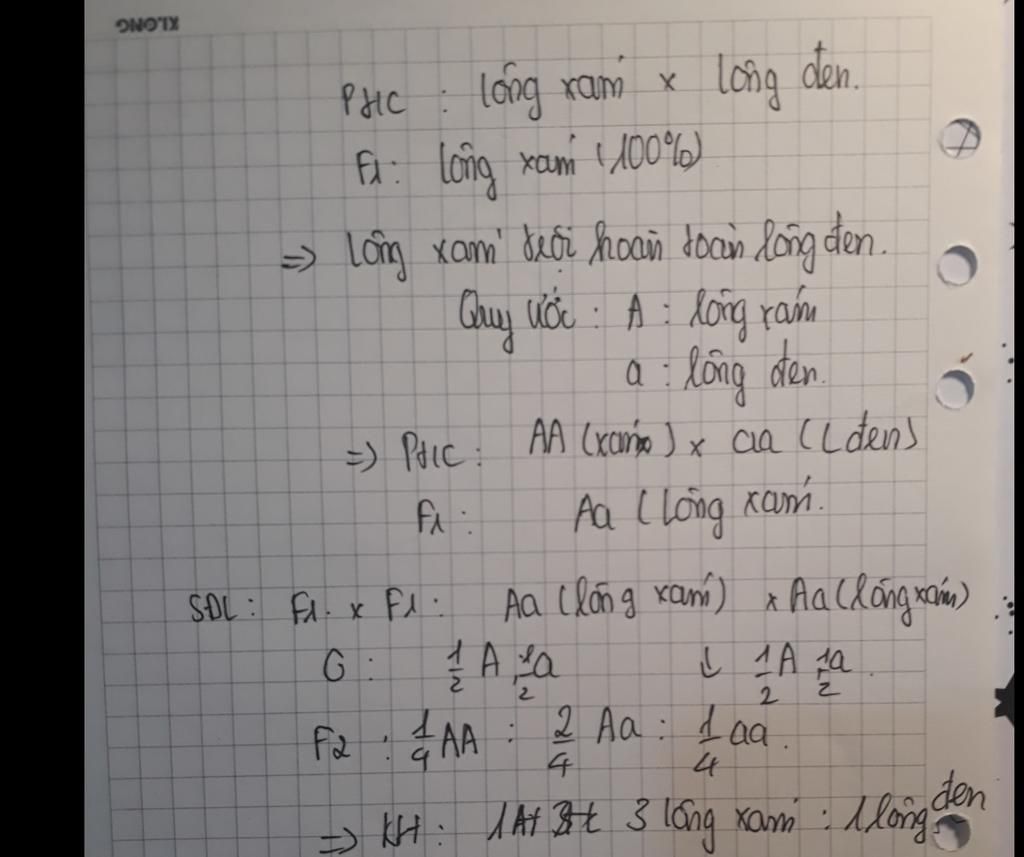 KLONG
Ptlc : lông xám x lông đen.
F1: lông xám (100%)
=> lông xám trội hoàn toàn lông đen.
Quy ước : A : lông xám
a : lông đen.
=> Ptlc : AA (xám) x aa (l đen)
F1 : Aa (lông xám.
SĐL: F1 x F1: Aa (lông xám) x Aa (lông xám)
G : 1/2 A, 1/2 a ↓ 1/2 A 1/2 a.
F2 : 1/4 AA : 2/4 Aa : 1/4 aa.
=> KH: 3 lông xám : 1 lông đen